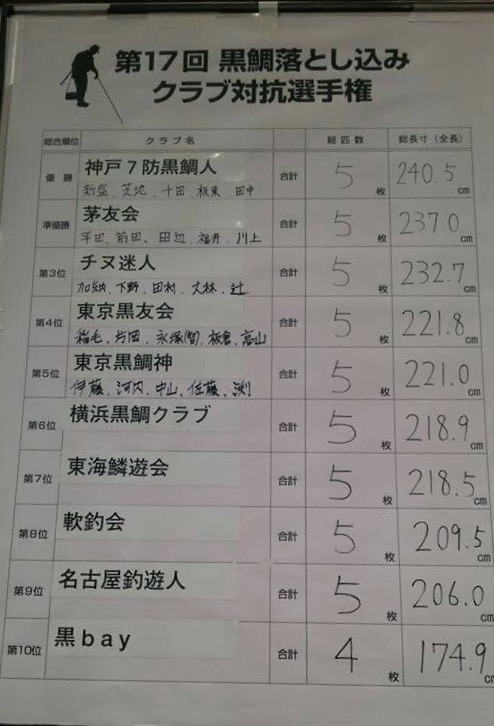 第17回 黒鯛落とし込み
クラブ対抗選手権
総合順位 クラブ名 総匹数 総長寸（全長）
優勝 神戸７防黒鯛人 合計 5枚 240.5cm
新盛、芝地、十田、板東、田中
準優勝 茅友会 合計 5枚 237.0cm
平田、前田、田辺、福井、川上
第3位 チヌ迷人 合計 5枚 232.7cm
加納、下野、田村、大林、辻
第4位 東京黒友会 合計 5枚 221.8cm
稲毛、片岡、永塚(智)、板倉、高山
第5位 東京黒鯛神 合計 5枚 221.0cm
伊藤、河内、中山、佐藤、渕
第6位 横浜黒鯛クラブ 合計 5枚 218.9cm
第7位 東海鱗遊会 合計 5枚 218.5cm
第8位 軟釣会 合計 5枚 209.5cm
第9位 名古屋釣遊人 合計 5枚 206.0cm
第10位 黒ｂａｙ 合計 4枚 174.9cm